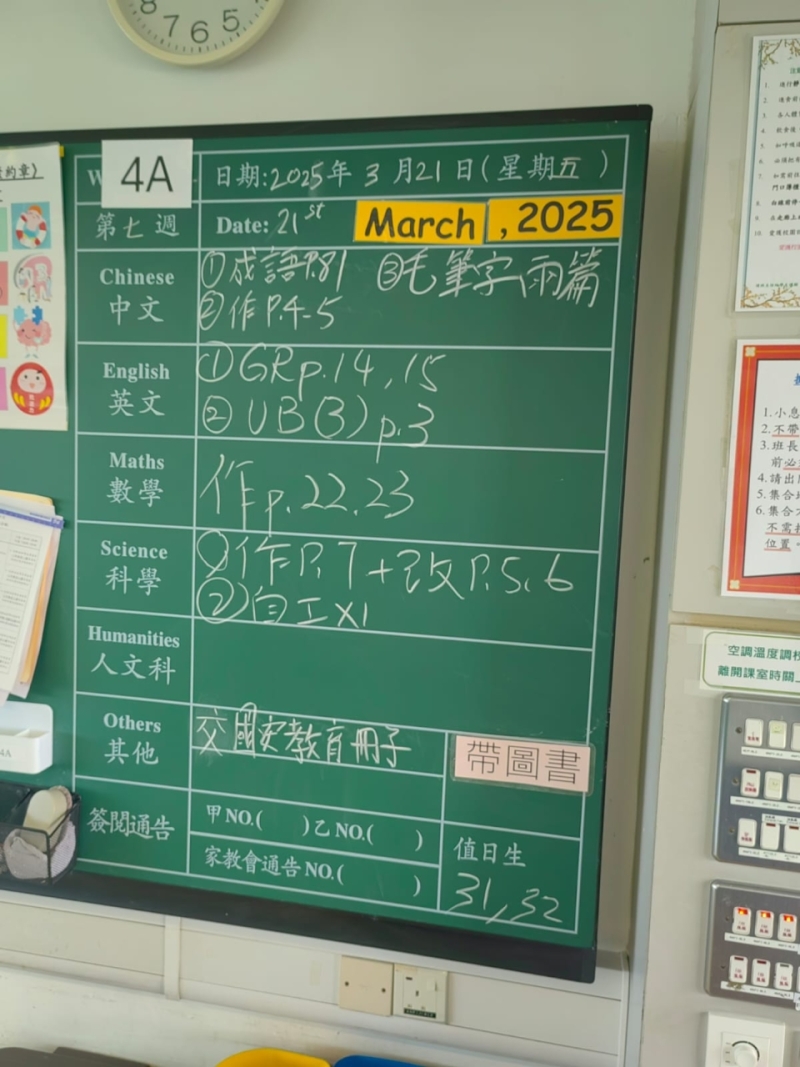 8 7 6 5
4A
日期:2025年 3 月21日(星期五 )
第七週
Date: 21st March , 2025
Chinese
中文
①成語P.81 ③毛筆字兩篇
②作P.4-5
English
英文
①GRp.14,15
②UB(3)p.3
Maths
數學
作p.22.23
Science
科學
①作P.7+改P.5,6
②自工X1
Humanities
人文科
Others
其他
交國安教育冊子
帶圖書
簽閱通告
甲NO.( )乙NO.( )
家教會通告NO.( )
值日生
31,32
4A
1.小息
2.不帶
3.班長
前必
4.請出
5.集合
6.集合
不需
位置。
空調溫度調
離開課室時關